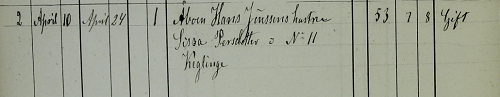 2 April 10 April 24 1 Åboen Hans Jönssons hustru 53 7 8 Gift
Sissa Persdotter o No 11
Wiglinge